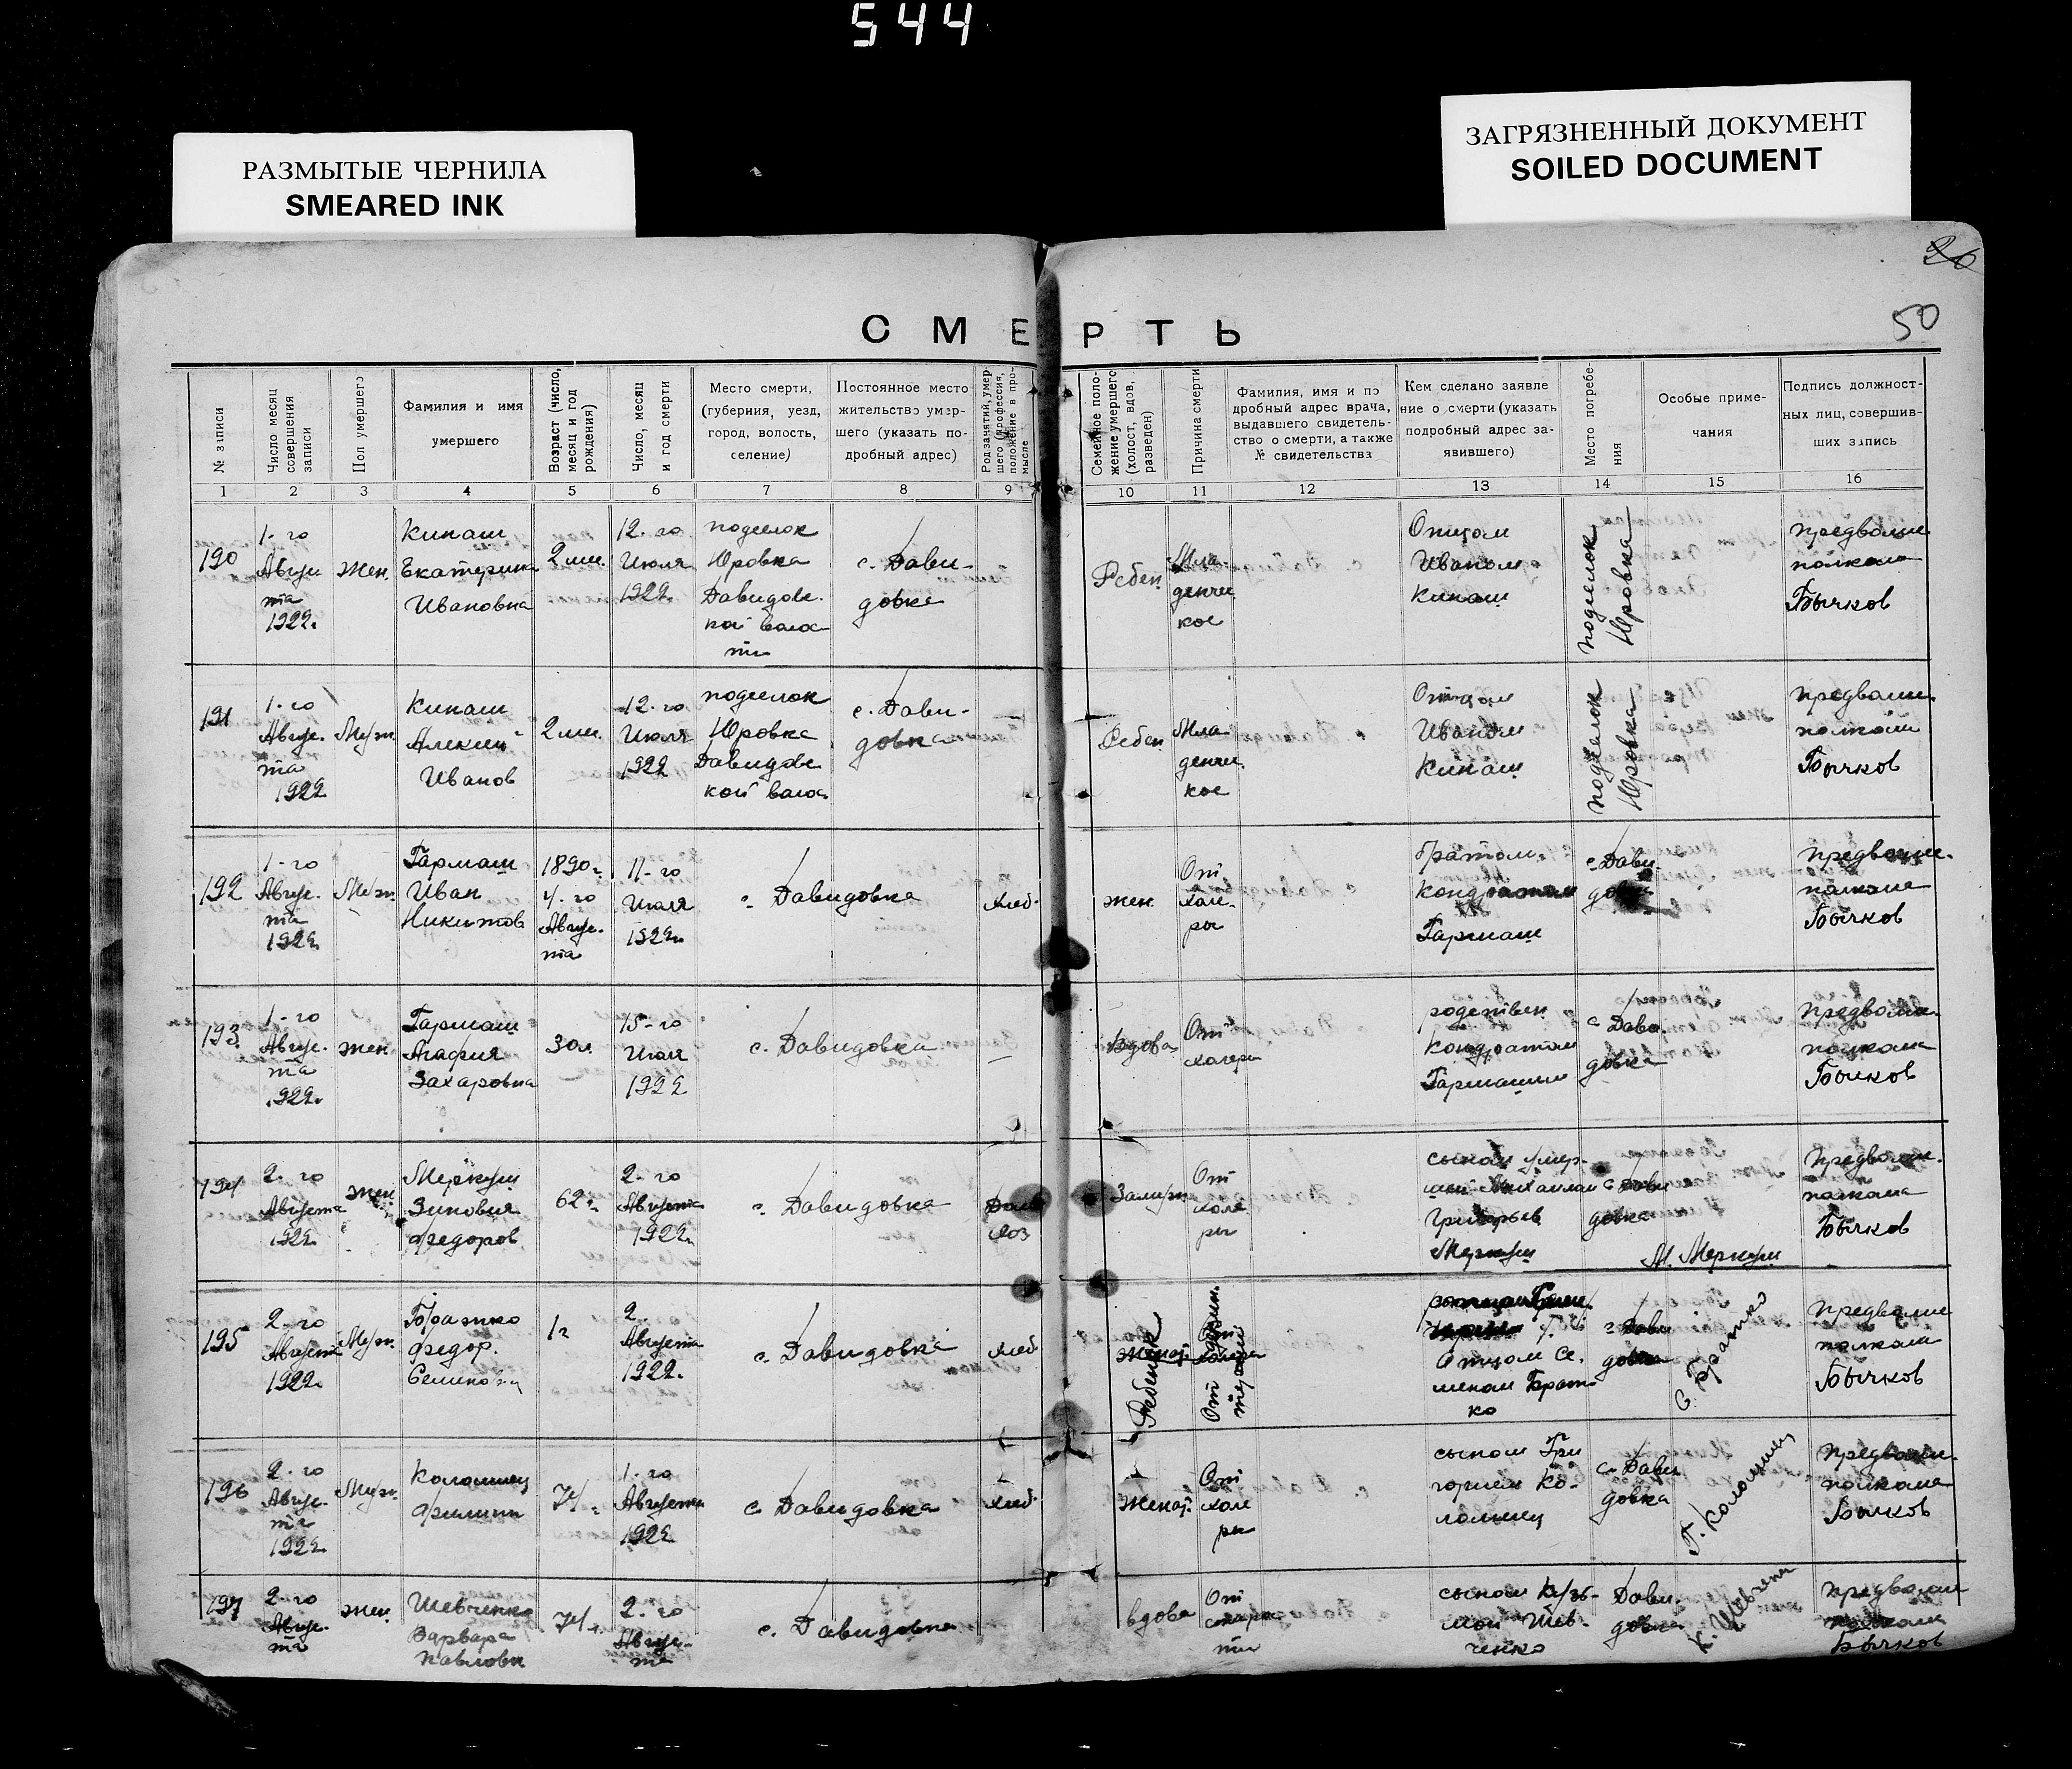 544
РАЗМЫТЫЕ ЧЕРНИЛА
SMEARED INK
ЗАГРЯЗНЕННЫЙ ДОКУМЕНТ
SOILED DOCUMENT
26
50
СМЕРТЬ
№ записи
Число месяц
совершения
записи
Пол умершего
Фамилия и имя
умершего
Возраст (число,
месяц и год
рождения)
Число, месяц
и год смерти
Место смерти,
(губерния, уезд,
город, волость,
селение)
Постоянное место
жительство умер-
шего (указать по-
дробный адрес)
Род занятий, умер-
шего (профессия,
положение в про-
мысле
Семейное поло-
жение умершего
(холост, вдов,
разведен)
Причина смерти
Фамилия, имя и по
дробный адрес врача,
выдавшего свидетель-
ство о смерти, а также
№ свидетельства
Кем сделано заявле
ние о смерти (указать
подробный адрес за-
явившего)
Место погребе-
ния
Особые приме-
чания
Подпись должност-
ных лиц, совершив-
ших запись
1 2 3 4 5 6 7 8 9 10 11 12 13 14 15 16
190
1-го
Авгус
та
1922г.
Жен.
Кипаш
Екатерина
Ивановна
2 ме.
12-го
Июля
1922
поселок
Юровка
Давидов.
кой волос
ти
с. Дави-
довке
Ребен
Мла
денче
кое
Отцом
Иваном
Кипаш
поселок
Юровка
предволис
полкома
Бычков
191
1-го
Авгус.
та
1922
Муж.
Кипаш
Алексей
Иванов
2 ме.
12-го
Июля
1922
поселок
Юровка
Давидов
кой волос.
с. Дави-
довка
Ребен
Мла
денче.
кое
Отцом
Иваном
Кипаш
поселок
Юровка
предволис.
полком
Бычков
192
1-го
Авгус.
та
1922
Муж.
Гармаш
Иван
Никитов
1890г.
4-го
Авгус.
та
11-го
Июля
1922г.
с. Давидовка
хлеб.
жен.
От
холе-
ры
братом.
Кондратом
Гармаш
с Дави.
довка
предволис.
полкома
Бычков
193
1-го
Авгус.
та
1922г.
жен.
Гармаш
Агафия
Захаровна
30л.
15-го
Июля
1922
с. Давидовка
—
вдова
От
холеры
родствен
Кондратом
Гармашем
с Дави.
довка
предволис.
полкома
Бычков
194
2-го
Августа
1922
жен.
Меркуш
Зиновия
Федоров.
62г.
2-го
Августа
1922г.
с. Давидовка
Дом
хоз
Замуж
От
холе
ры
сыном умер-
шей Михаилом
Григорьев
Меркуш
с Дави
довка
М. Меркуш
предволис.
полкома
Бычков
195
2-го
Августа
1922г.
Муж.
Братко
Федор.
1г
2.
Августа
1922г.
с. Давидовка
хлеб
Ребенок
От
Отцом Се.
меном Брат-
ко
с Дави
довка
С. Братко
предволис
полкома
Бычков
196
2-го
Авгус-
та
1922.
Муж.
Коломиец
Филипп
74г.
1-го
Августа
1922
с Давидовка
хлеб
Женат.
От
холе
ры
сыном Гри
горием Ко-
ломиец
с. Дави
довка
Г. Коломиец
предволис.
полкома
Бычков
197
2-го
Авгус-
та
жен.
Шевченко
Варвара
Павловн
74г.
2-го
Авгус-
та
с. Давидовка
вдова
От
старос
ти
сыном Кузь-
мой Шев-
ченко
Дави.
довка
К. Шевченко
предволис
полкома
Бычков